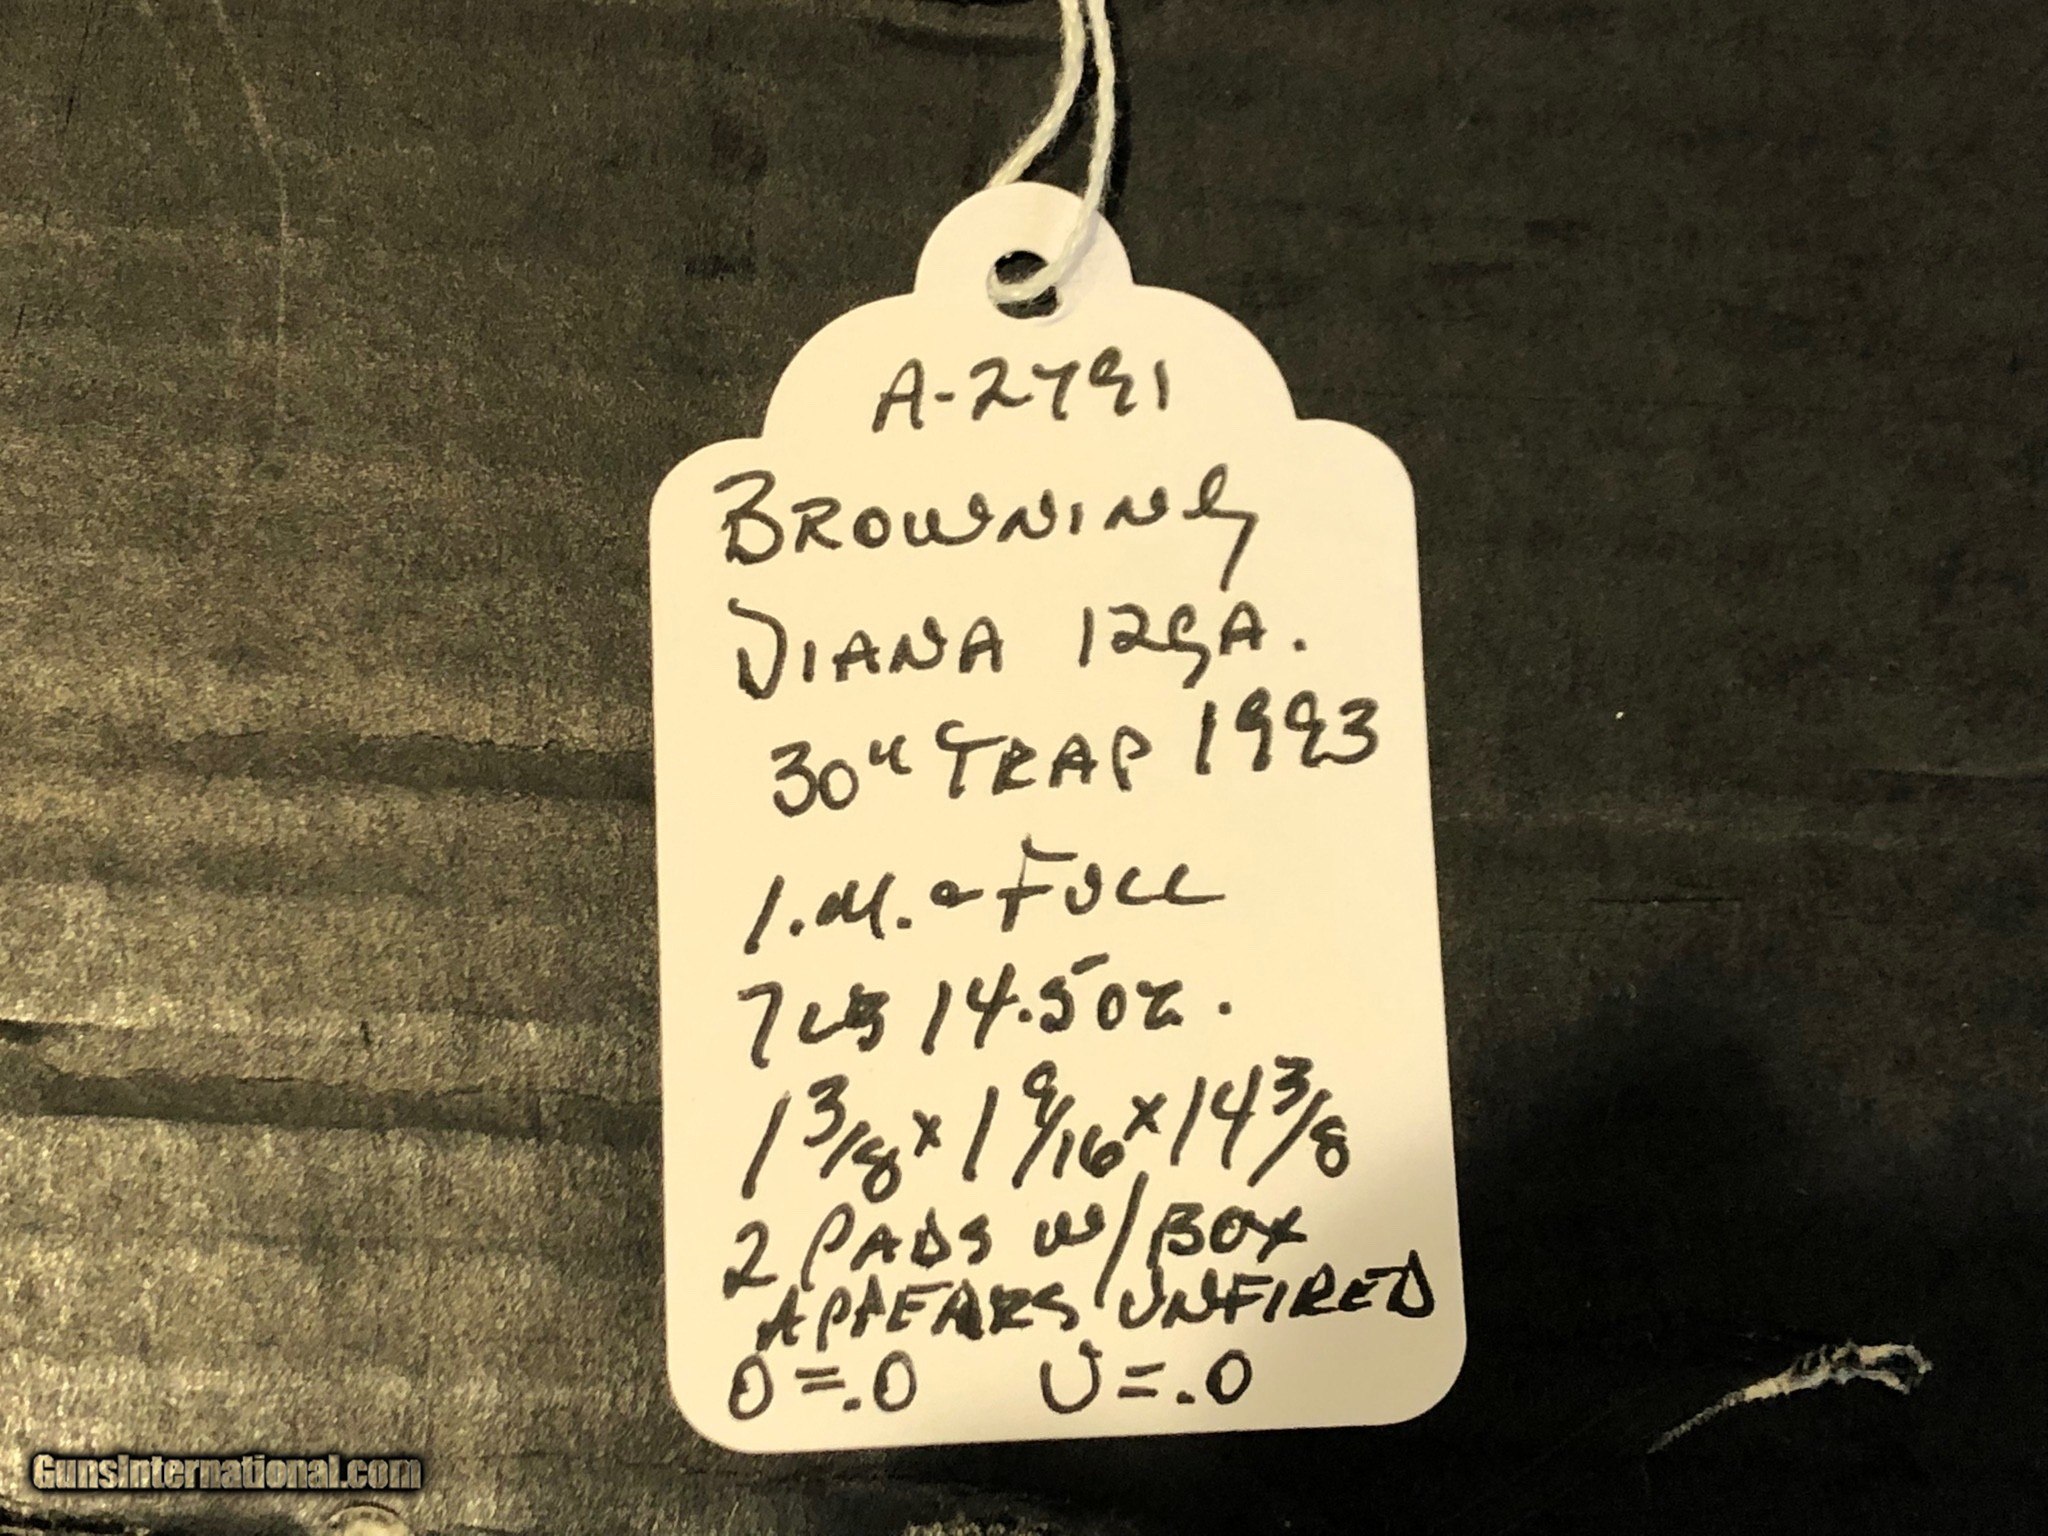 A-2791
BROWNING
DIANA 12gA.
30" TRAP 1993
I.M. - FULL
7 LB 14.5 OZ.
1 3/8 x 1 9/16 x 14 3/8
2 PADS W/BOX
APPEARS UNFIRED
O = .0 U = .0
GunsInternational.com